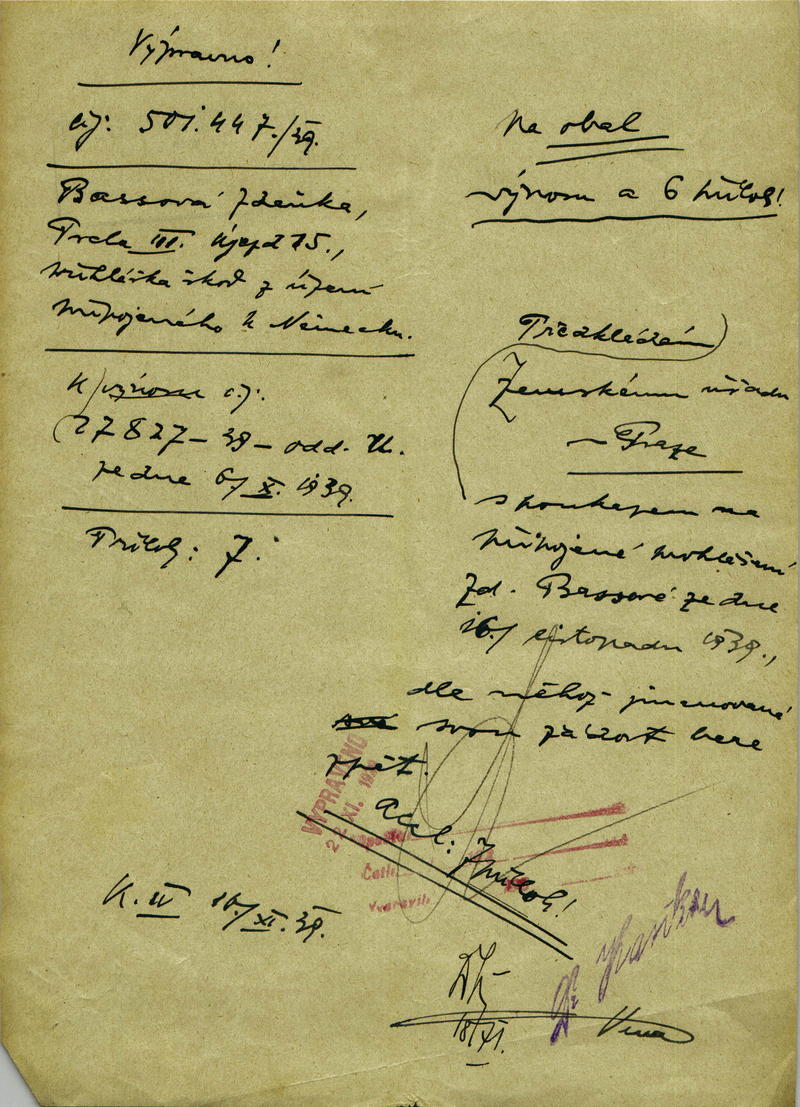 Výpravno!
čj: 501.447./39.
Bassová Zdeňka,
Praha III. Újezd 15.,
přihláška škod z území
připojeného k Německu.
K výnosu čj.
27827–39–odd. II.
ze dne 6/X. 1939.
Příloh: 7.
K. II 16/XI. 39.
Na obal
výnosu a 6 příloh!
Předkládám
Zemskému úřadu
v Praze
s poukazem na
připojené prohlášení
Zd. Bassové ze dne
16./ listopadu 1939.,
dle něhož jmenovaná
svou žádost bere
zpět.
Acl: 7 příloh!
VYPRAVENO
22. XI. 1939
Četl:
Vypravil:
18/XI.
Dr